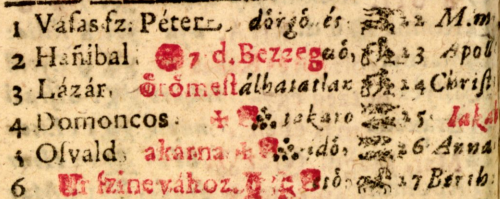 1 Vasas-sz. Péter dörgő és 12 M.m
2 Hañibal. 7 d. Bezzeg 13 Apol
3 Lázár, örömest álhatatlan 14 Christ
4 Domoncos. takaro 15 Iaka
5 Osvald, akarna idő, 16 Anna
6 Ur színe vához. 17 Berth